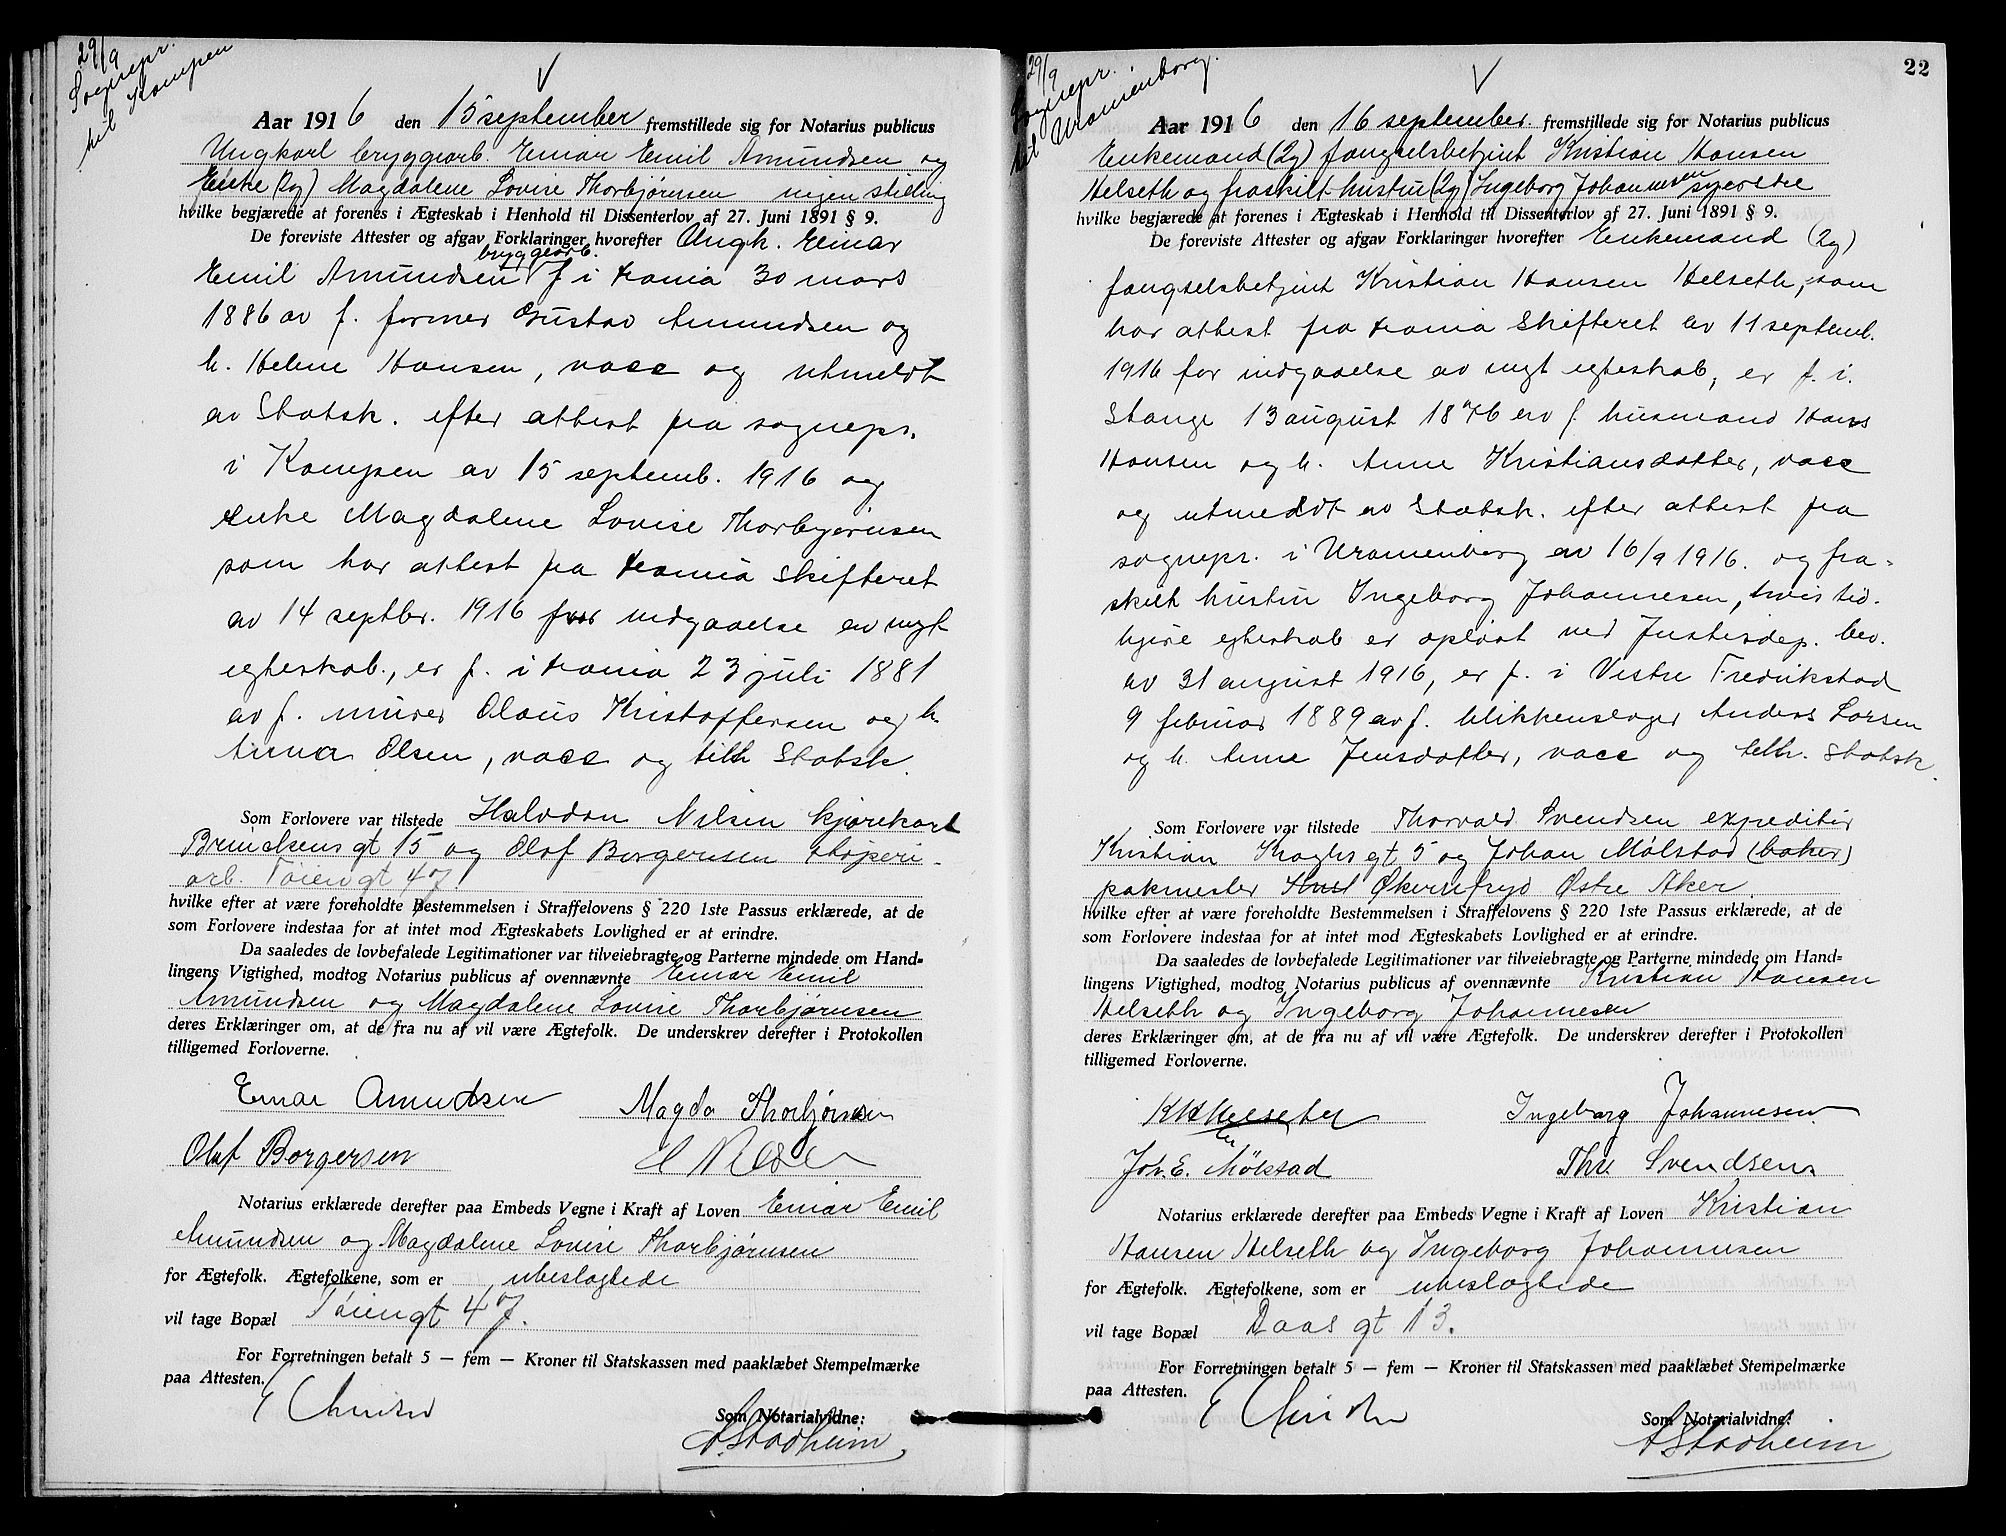 29/9
Sognepr.
til Kampen
V
Aar 1916 den 15 september fremstillede sig for Notarius publicus
Ungkarl bryggearb. Einar Emil Amundsen og
Enke (2g) Magdalene Lovise Thorbjørnsen ingen stilling
hvilke begjærede at forenes i Ægteskab i Henhold til Dissenterlov af 27. Juni 1891 § 9.
De foreviste Attester og afgav Forklaringer hvorefter Ungk. Einar
bryggearb.
Emil Amundsen f i Krania 30 mars
1886 av f. former Gustav Amundsen og
h. Helene Hansen, vacc og utmeldt
av Statsk. efter attest fra sognepr.
i Kampen av 15 septemb. 1916 og
enke Magdalene Lovise Thorbjørnsen
som har attest fra Krania Skifteret
av 14 septbr. 1916 for indgaaelse av nyt
egteskab., er f. i Krania 23 juli 1881
av f. murer Olaus Kristoffersen og h.
Anna Olsen, vacc og tilh Statsk.
Som Forlovere var tilstede Halvdan Nilsen kjørekarl
gt 15 og Olaf Borgersen støperi-
arb. Tøiengt 47
hvilke efter at være foreholdte Bestemmelsen i Straffelovens § 220 1ste Passus erklærede, at de
som Forlovere indestaa for at intet mod Ægteskabets Lovlighed er at erindre.
Da saaledes de lovbefalede Legitimationer var tilveiebragte og Parterne mindede om Hand-
lingens Vigtighed, modtog Notarius publicus af ovennævnte Einar Emil
Amundsen og Magdalene Lovise Thorbjørnsen
deres Erklæringer om, at de fra nu af vil være Ægtefolk. De underskrev derefter i Protokollen
tilligemed Forloverne.
Einar Amundsen Magda Thorbjørnsen
Olaf Borgersen H Nilsen
Notarius erklærede derefter paa Embeds Vegne i Kraft af Loven Einar Emil
Amundsen og Magdalene Lovise Thorbjørnsen
for Ægtefolk. Ægtefolkene, som er ubeslagtede
vil tage Bopæl Tøiengt 47.
For Forretningen betalt 5 — fem — Kroner til Statskassen med paaklæbet Stempelmærke
paa Attesten.
Som Notarialvidne:
A Stadheim
22
29/9
Sognepr.
til Uranienborg.
V
Aar 1916 den 16 september. fremstillede sig for Notarius publicus
Enkemand (2g) fængselsbetjent Kristian Hansen
Helseth og fraskilt hustru (2g) Ingeborg Johannesen syerske
hvilke begjærede at forenes i Ægteskab i Henhold til Dissenterlov af 27. Juni 1891 § 9.
De foreviste Attester og afgav Forklaringer hvorefter Enkemand (2g)
fængselsbetjent Kristian Hansen Helseth, som
har attest fra Krania Skifteret av 11 septemb.
1916 for indgaaelse av nyt egteskab, er f. i.
Stange 13 august 1876 av f. husmand Hans
Hansen og h. Anne Kristiansdatter, vacc
og utmeldt av Statsk. efter attest fra
sognepr. i Uranienborg av 16/9 1916. og fra-
skilt hustru Ingeborg Johannesen, hvis tid-
ligere egteskab er opløst ved Justisdep. bev.
av 31 august 1916, er f. i Vestre Fredrikstad
9 februar 1889 av f. blikkenslager Anders Larsen
og h. Anne Jensdatter, vacc og tilh. Statsk.
Som Forlovere var tilstede Thorvald Svendsen expeditør
Kristian Kroghs gt 5 og Johan Mølstad (baker)
pakmester Økernfryd Østre Aker
hvilke efter at være foreholdte Bestemmelsen i Straffelovens § 220 1ste Passus erklærede, at de
som Forlovere indestaa for at intet mod Ægteskabets Lovlighed er at erindre.
Da saaledes de lovbefalede Legitimationer var tilveiebragte og Parterne mindede om Hand-
lingens Vigtighed, modtog Notarius publicus af ovennævnte Kristian Hansen
Helseth og Ingeborg Johannesen
deres Erklæringer om, at de fra nu af vil være Ægtefolk. De underskrev derefter i Protokollen
tilligemed Forloverne.
KHHelseth Ingeborg Johannesen
Joh. E. Mølstad Thv Svendsen
Notarius erklærede derefter paa Embeds Vegne i Kraft af Loven Kristian
Hansen Helseth og Ingeborg Johannesen
for Ægtefolk. Ægtefolkene, som er ubeslagtede
vil tage Bopæl Daas gt 13.
For Forretningen betalt 5 — fem — Kroner til Statskassen med paaklæbet Stempelmærke
paa Attesten.
Som Notarialvidne:
A Stadheim